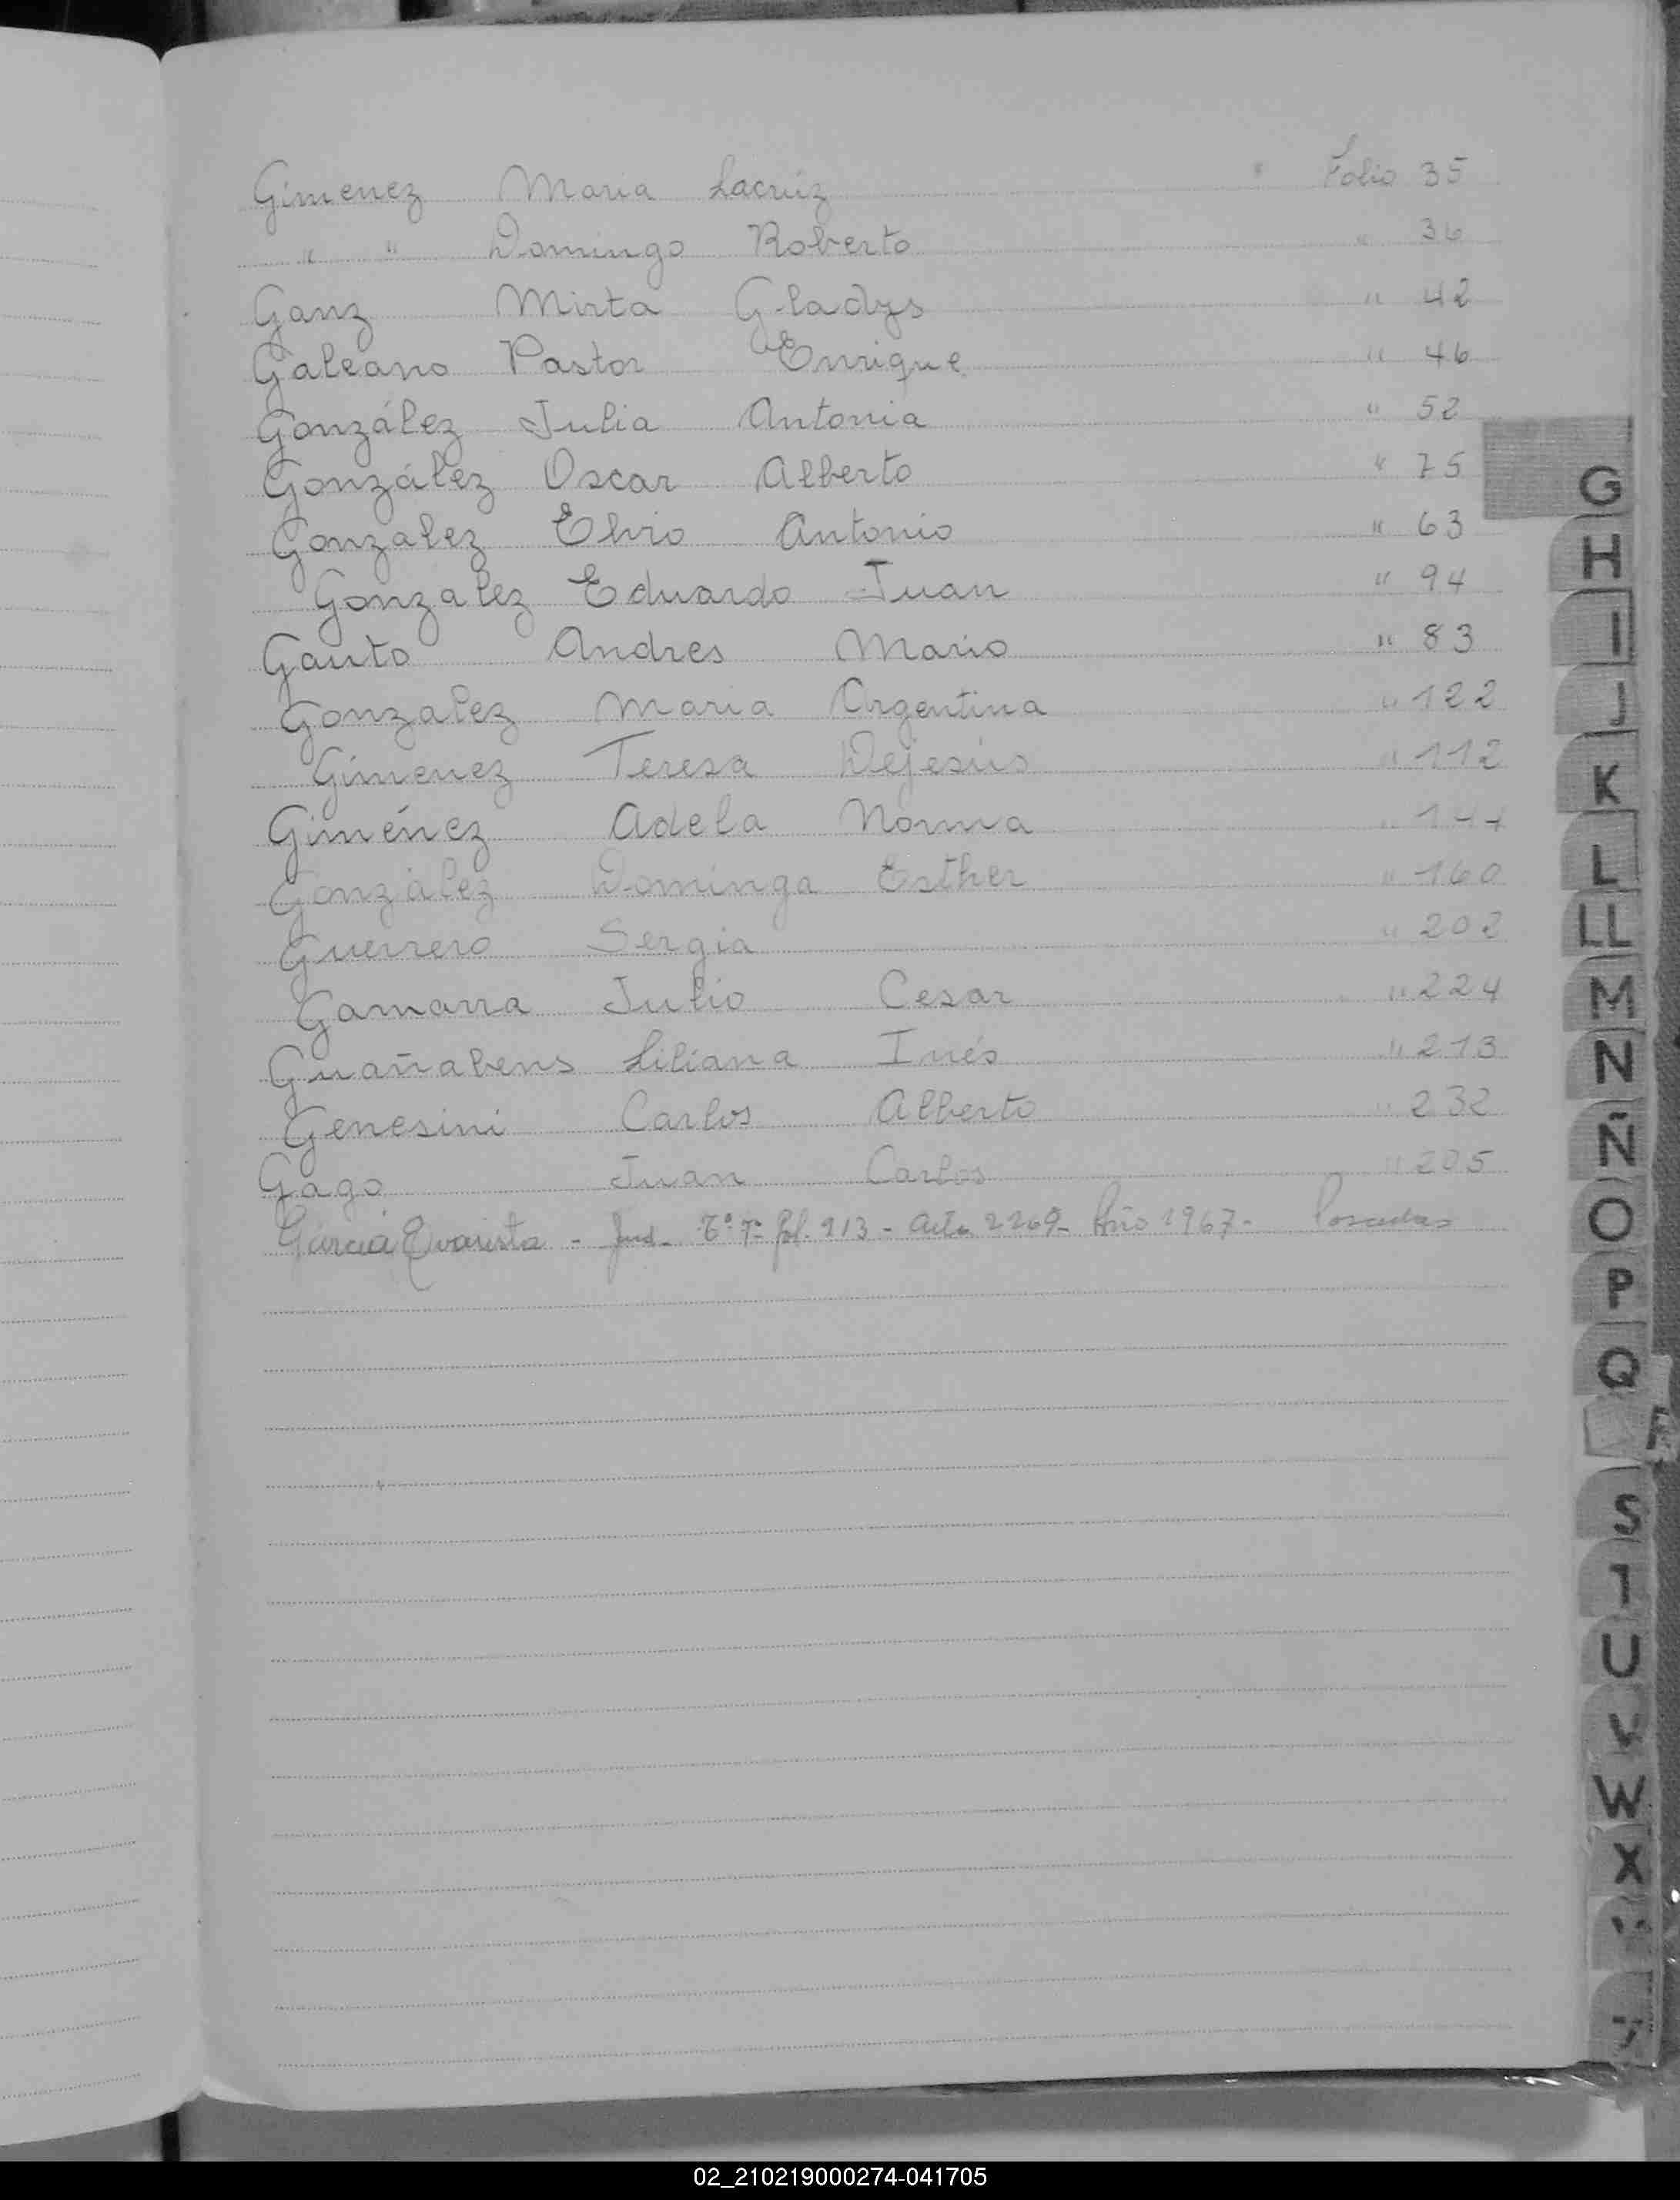 Gimenez Maria Lacruz Folio 35
" " Domingo Roberto " 36
Ganz Mirta Gladys " 42
Galeano Pastor Enrique " 46
González Julia Antonia " 52
González Oscar Alberto " 75
Gonzalez Elvio Antonio " 63
Gonzalez Eduardo Juan " 94
Gauto Andres Mario " 83
Gonzalez Maria Argentina " 122
Gimenez Teresa Dejesús " 112
Giménez Adela Norma " 144
González Dominga Esther " 160
Guerrero Sergia " 202
Gamarra Julio Cesar " 224
Guañabens Liliana Inés " 213
Genesini Carlos Alberto " 232
Gago Juan Carlos " 205
Garcia Evarista - Jud- Tº 7º fol. 213 - Acta 2269- Año 1967- Posadas
G
H
I
J
K
L
LL
M
N
Ñ
O
P
Q
R
S
T
U
V
W
X
Y
02_210219000274-041705